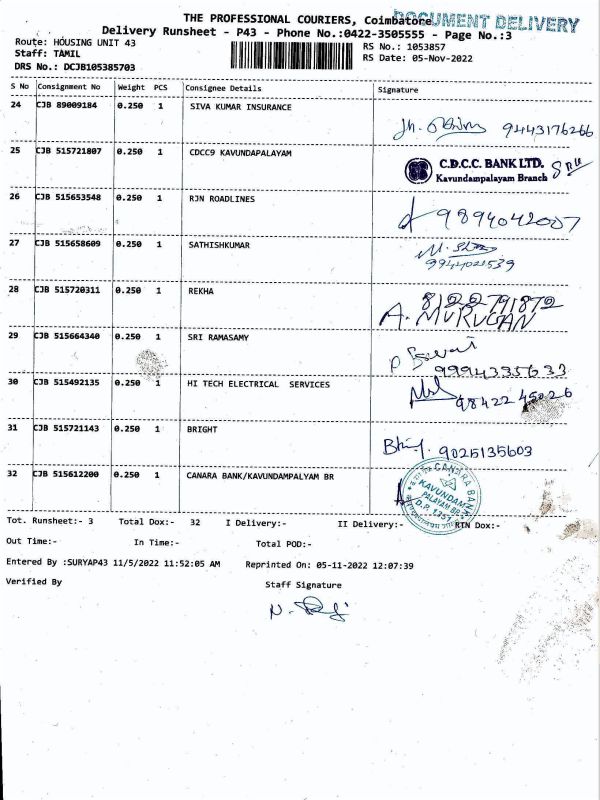 THE PROFESSIONAL COURIERS, Coimbatore
DOCUMENT DELIVERY
Delivery Runsheet - P43 - Phone No.:0422-3505555 - Page No.:3
Route: HOUSING UNIT 43
RS No.: 1053857
Staff: TAMIL
RS Date: 05-Nov-2022
DRS No.: DCJB105385703
S No Consignment No Weight PCS Consignee Details Signature
24 CJB 89009184 0.250 1 SIVA KUMAR INSURANCE
9443176266
25 CJB 515721807 0.250 1 CDCC9 KAVUNDAPALAYAM
C.D.C.C. BANK LTD.
Kavundampalayam Branch
26 CJB 515653548 0.250 1 RJN ROADLINES
9894042007
27 CJB 515658609 0.250 1 SATHISHKUMAR
9944021539
28 CJB 515720311 0.250 1 REKHA
8122791872
A. MURUGAN
29 CJB 515664340 0.250 1 SRI RAMASAMY
9994335633
30 CJB 515492135 0.250 1 HI TECH ELECTRICAL SERVICES
98422 45026
31 CJB 515721143 0.250 1 BRIGHT
9025135603
32 CJB 515612200 0.250 1 CANARA BANK/KAVUNDAMPALYAM BR
CANARA BANK
KAVUNDAM
PALAYAM BR.
Tot. Runsheet:- 3 Total Dox:- 32 I Delivery:- II Delivery:- RTN Dox:-
Out Time:- In Time:- Total POD:-
Entered By :SURYAP43 11/5/2022 11:52:05 AM Reprinted On: 05-11-2022 12:07:39
Verified By Staff Signature